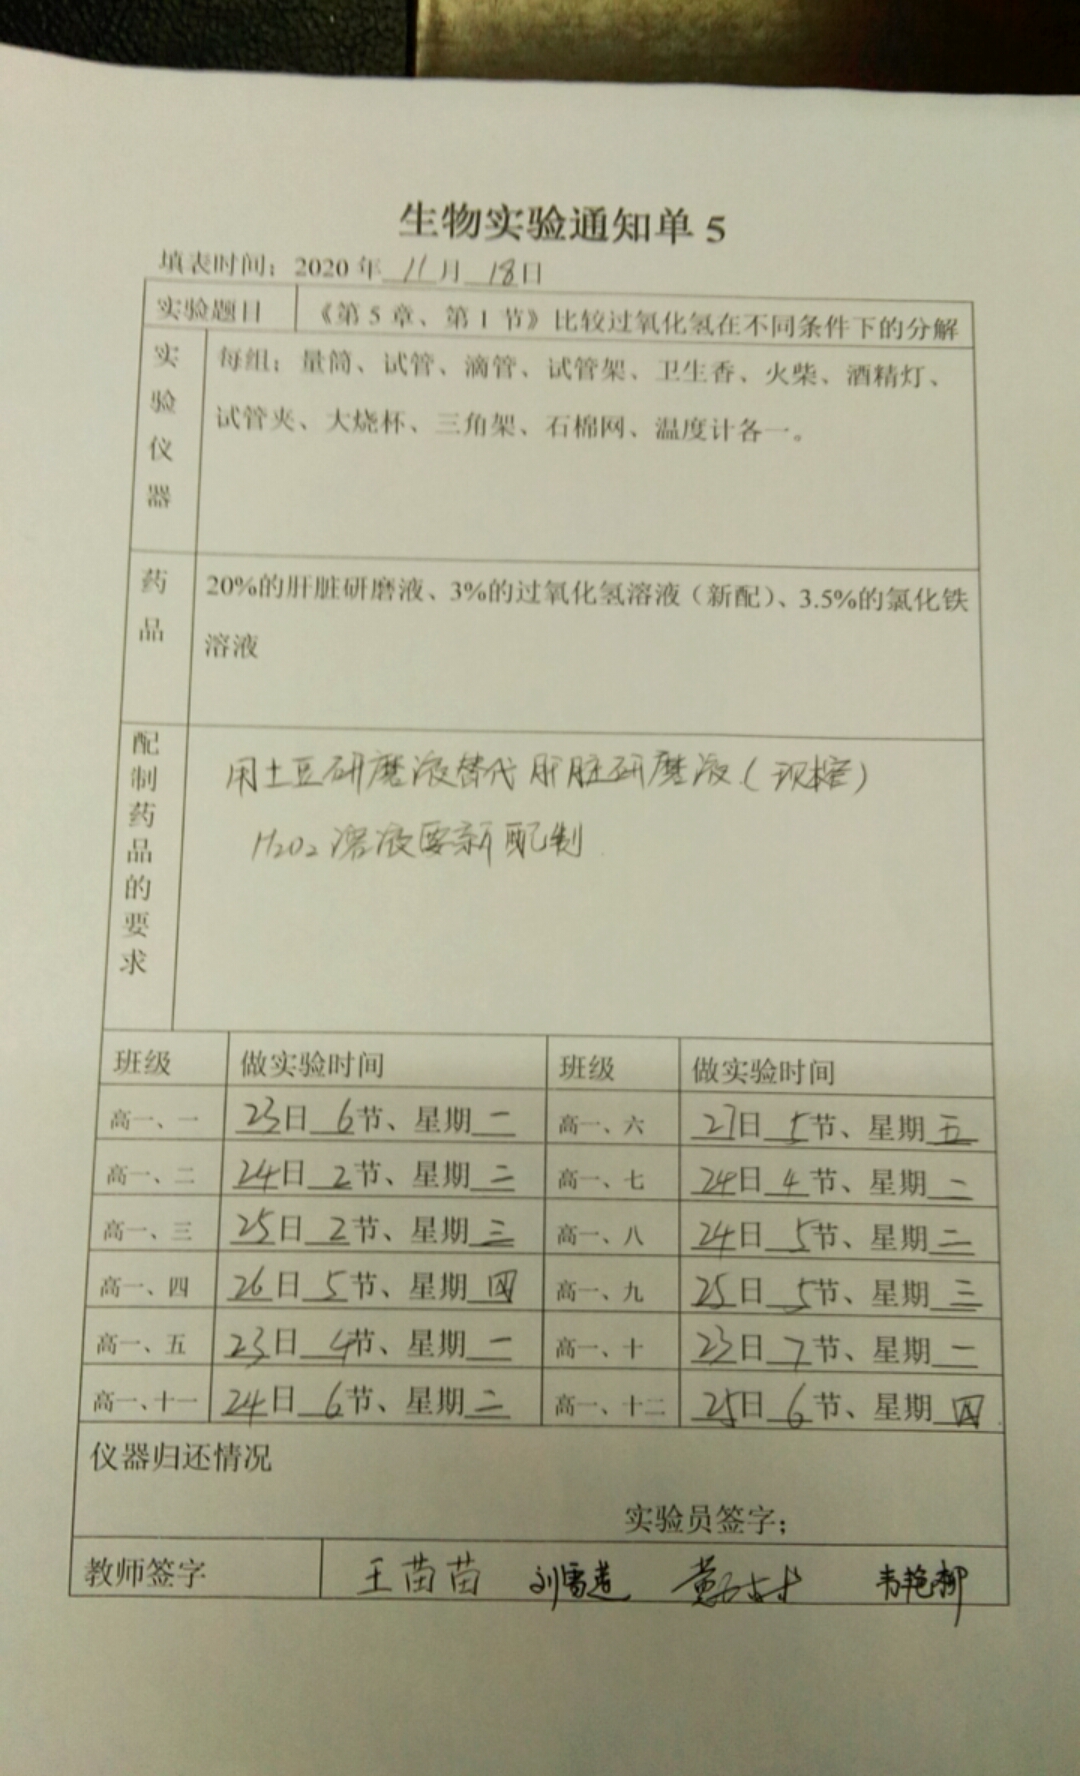 生物实验通知单 5
填表时间：2020 年 11 月 18 日
实验题目 《第 5 章、第 1 节》比较过氧化氢在不同条件下的分解
实验仪器
每组：量筒、试管、滴管、试管架、卫生香、火柴、酒精灯、
试管夹、大烧杯、三角架、石棉网、温度计各一。
药品
20%的肝脏研磨液、3%的过氧化氢溶液（新配）、3.5%的氯化铁
溶液
配制药品的要求
用土豆研磨液替代肝脏研磨液（现榨）
H2O2 溶液要新配制
班级 做实验时间 班级 做实验时间
高一、一 23日 6节、星期一 高一、六 27日 5节、星期五
高一、二 24日 2节、星期二 高一、七 24日 4节、星期二
高一、三 25日 2节、星期三 高一、八 24日 5节、星期二
高一、四 26日 5节、星期四 高一、九 25日 5节、星期三
高一、五 23日 4节、星期一 高一、十 23日 7节、星期一
高一、十一 24日 6节、星期二 高一、十二 25日 6节、星期四
仪器归还情况
实验员签字：
教师签字 王苗苗 韦艳柳